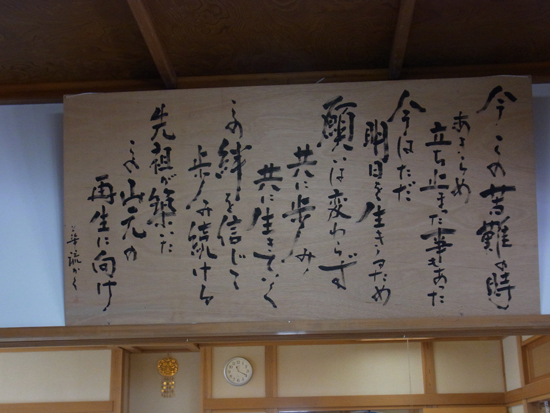 今この苦難の時
あきらめ
立ち止まった事もあった
今はただ
明日を生きるため
願いは変わらず
共に歩み
共に生きていく
この絆を信じて
歩み続ける
先祖が築いた
この山元の
再生に向け